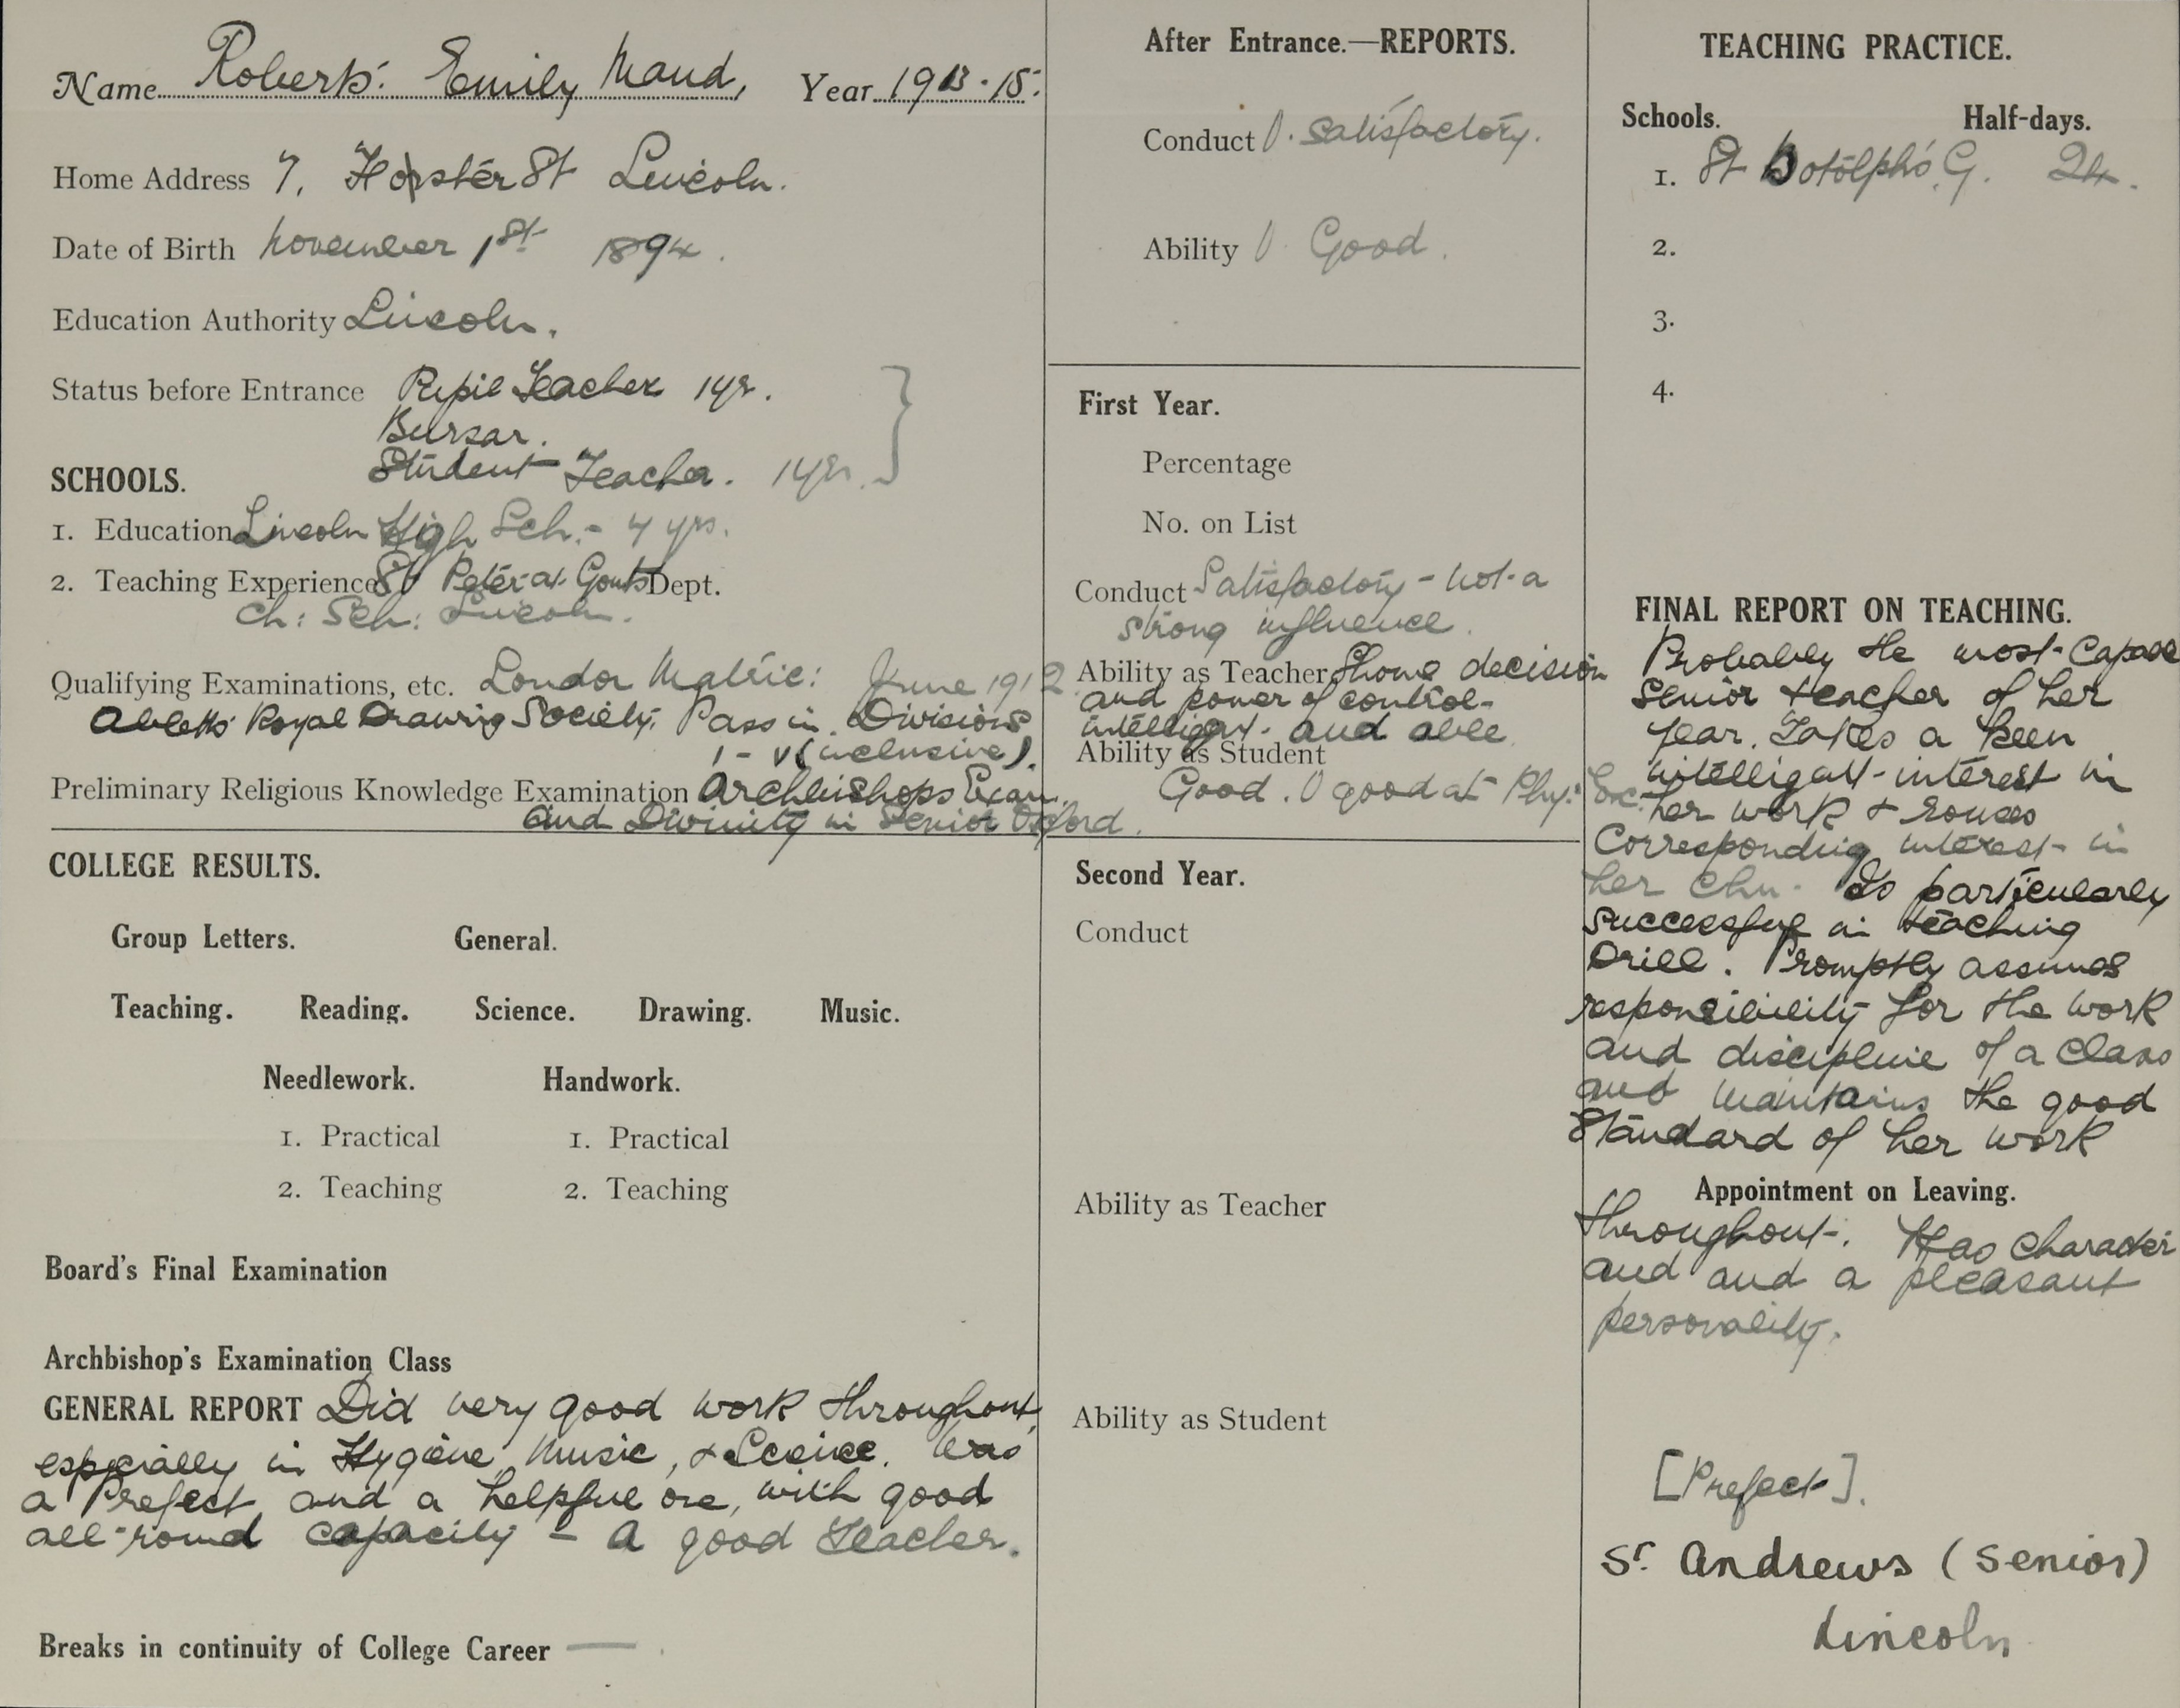 Name Roberts: Emily Maud, Year 1913-15.
Home Address 7, Forster St Lincoln.
Date of Birth November 1st 1894.
Education Authority Lincoln.
Status before Entrance Pupil Teacher 1yr.
Bursar.
Student Teacher. 1yr.
SCHOOLS.
1. Education Lincoln High Sch. - 4 yrs.
2. Teaching Experience St Peter at Gowts Dept.
Ch: Sch: Lincoln.
Qualifying Examinations, etc. London Matric: June 1912
Royal Drawing Society. Pass in Divisions
1 - V (inclusive).
Preliminary Religious Knowledge Examination Archbishops Exam.
and Divinity in Senior Oxford.
COLLEGE RESULTS.
Group Letters. General.
Teaching. Reading. Science. Drawing. Music.
Needlework. Handwork.
1. Practical 1. Practical
2. Teaching 2. Teaching
Board's Final Examination
Archbishop's Examination Class
GENERAL REPORT Did very good work throughout,
especially in Hygiene, Music, & Science. Was
a Prefect and a helpful one, with good
all-round capacity - a good teacher.
Breaks in continuity of College Career —
After Entrance.—REPORTS.
Conduct V. Satisfactory.
Ability V. Good.
First Year.
Percentage
No. on List
Conduct Satisfactory - not a
strong influence.
Ability as Teacher Shows decision
and power of control -
intelligent and able
Ability as Student
Good. V good at Phy: Exc:
Second Year.
Conduct
Ability as Teacher
Ability as Student
TEACHING PRACTICE.
Schools. Half-days.
1. St Botolph's G. 24.
2.
3.
4.
FINAL REPORT ON TEACHING.
Probably the most capable
Senior teacher of her
year. Takes a keen
intelligent interest in
her work & rouses
corresponding interest in
her chn. Is particularly
successful in teaching
Drill. Promptly assumes
responsibility for the work
and discipline of a class
and maintains the good
standard of her work
Appointment on Leaving.
throughout. Has character
and and a pleasant
personality.
[Prefect].
St. Andrews (Senior)
Lincoln